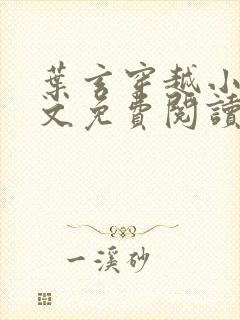 葉玄穿越小
文免費閱讀
一溪砂